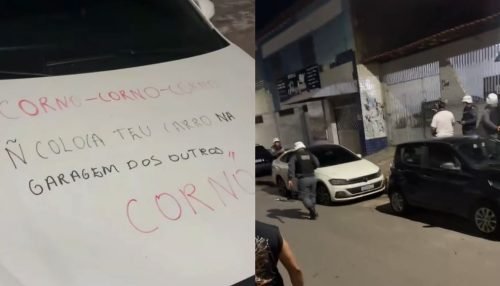 CORNO-CORNO-CORNO
Ñ COLOCA TEU CARRO NA
GARAGEM DOS OUTROS"
CORNO